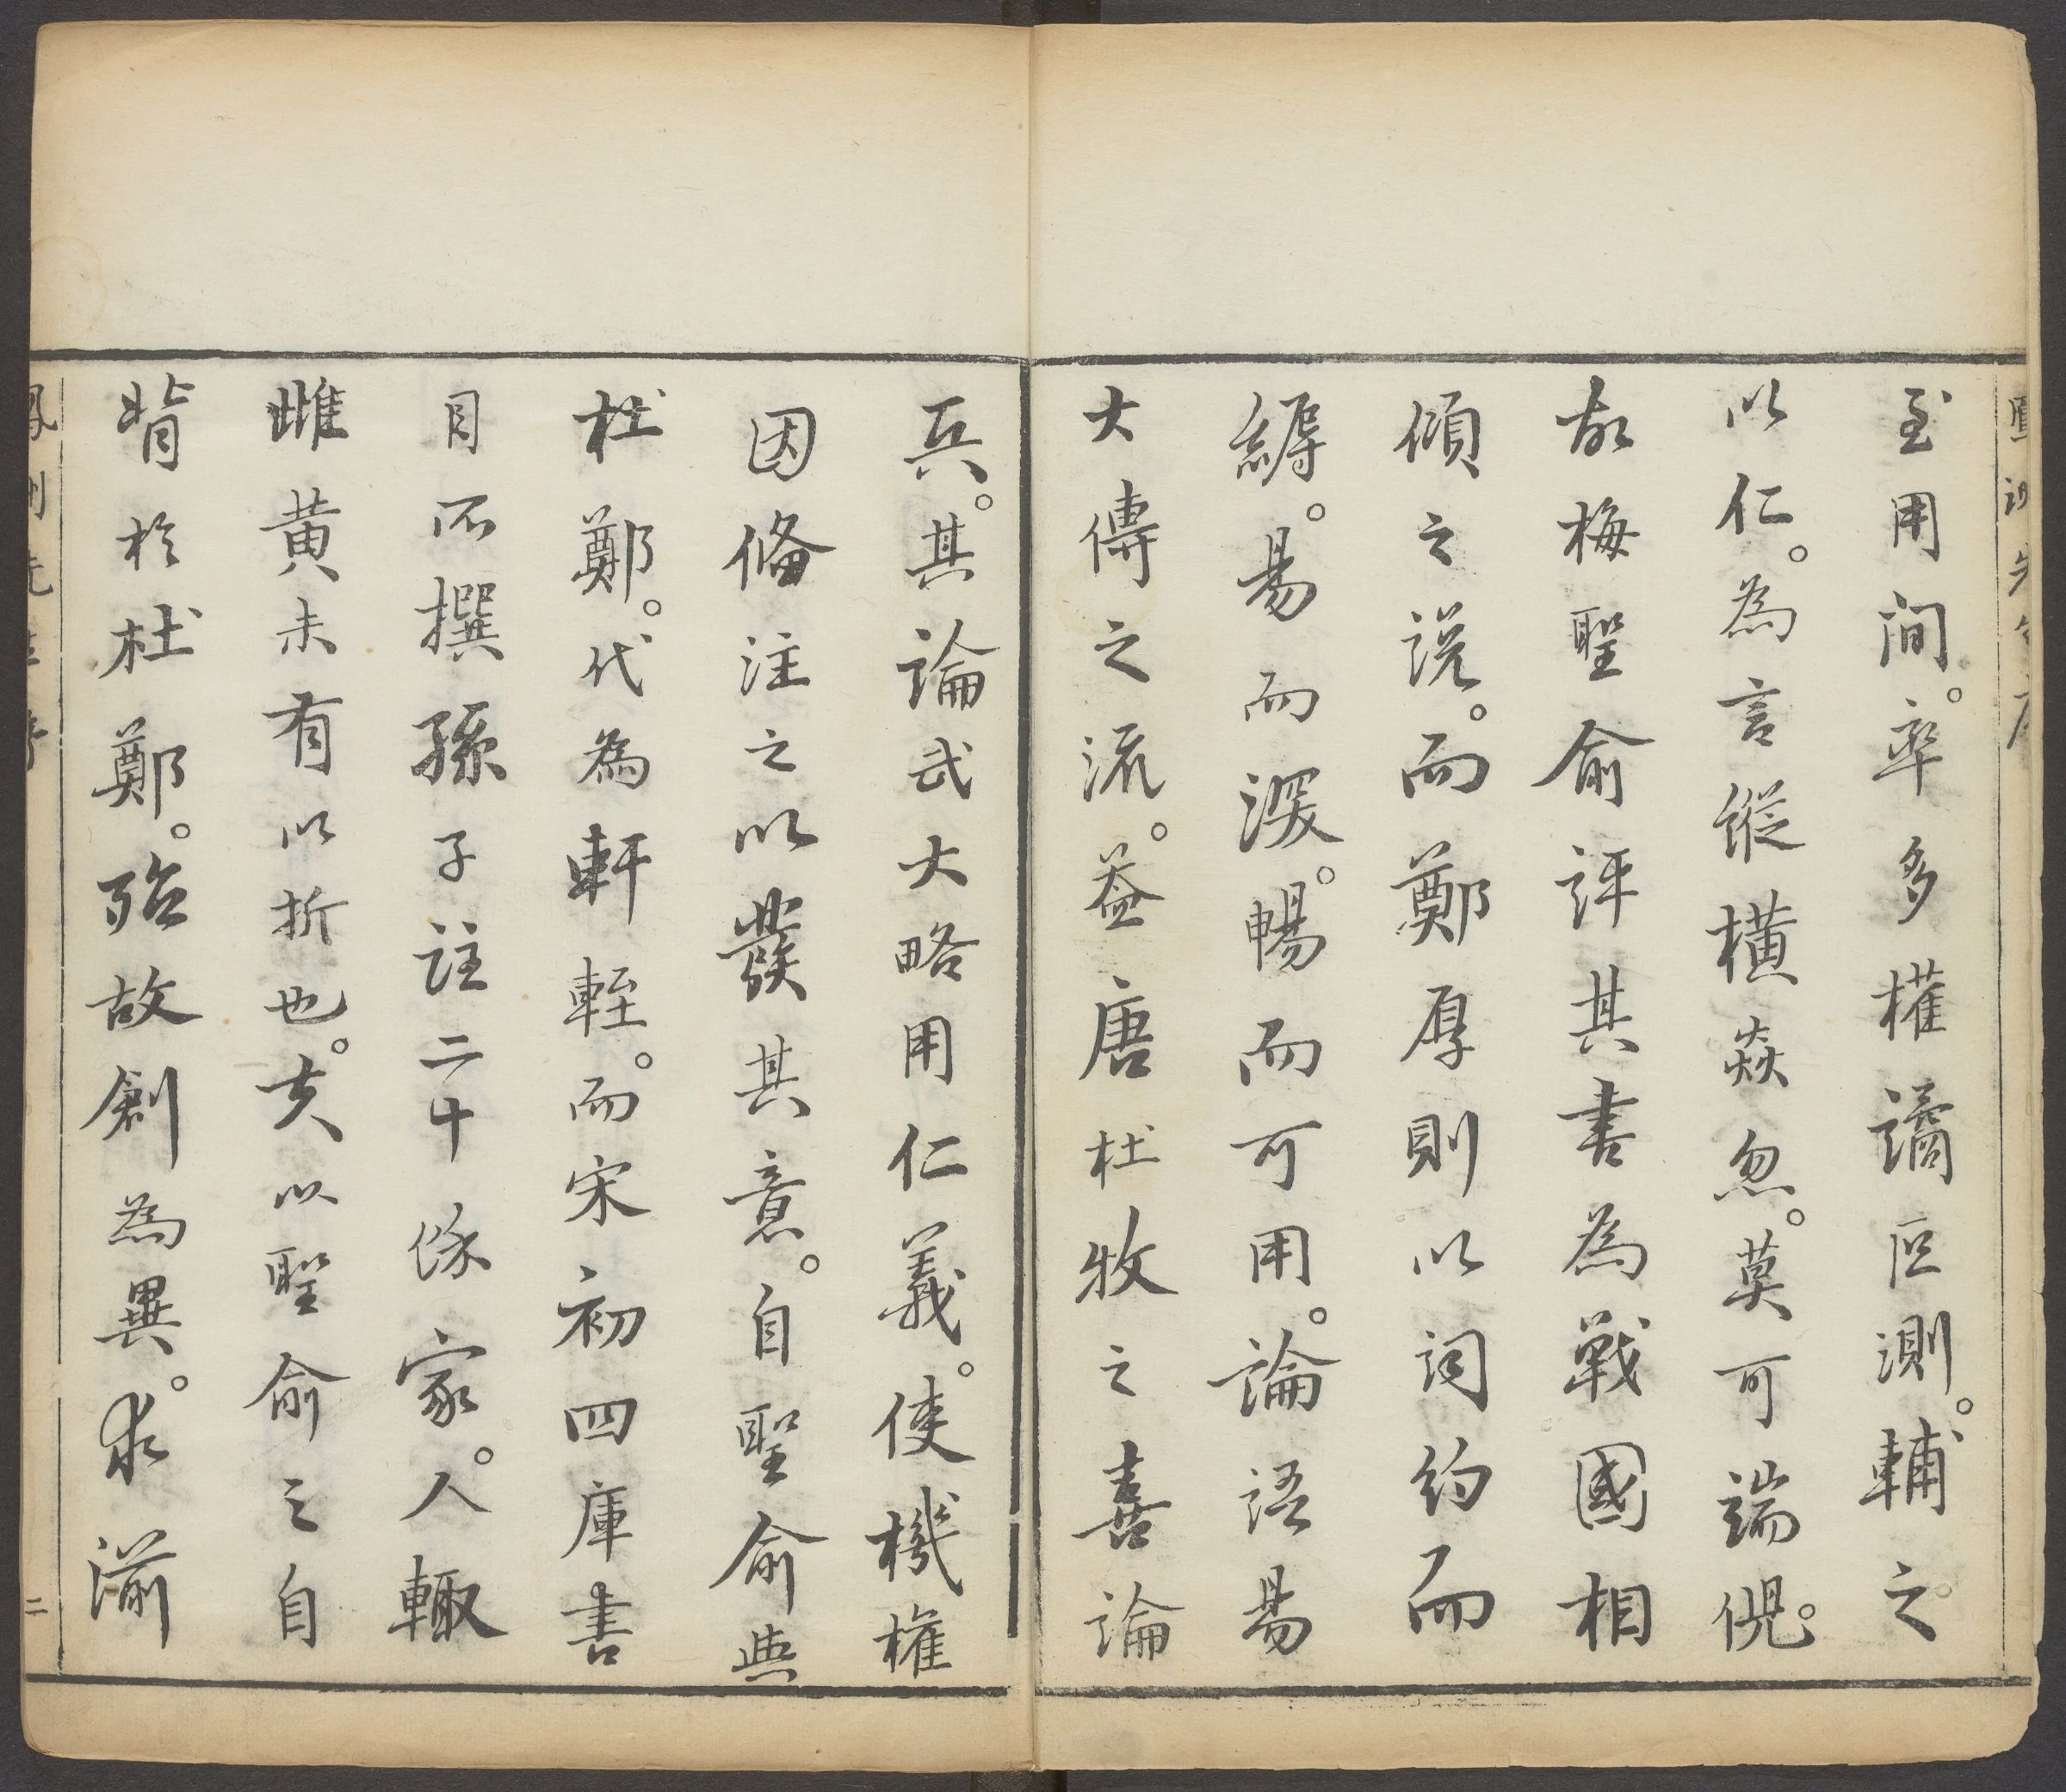 至用間。率多權譎叵測。輔之
以仁。為言縱橫焱忽。莫可端倪。
故梅聖俞評其書為戰國相
傾之說。而鄭厚則以詞約而
縟。易而深。暢而可用。論語易
大傳之流。葢唐杜牧之喜論
兵。其論武大略用仁義。使機權
因俻注之以發其意。自聖俞與
杜鄭。代為軒輊。而宋初四庫書
目所撰孫子註二十餘家。人輙
雌黃未有以折也。夫以聖俞之自
背於杜鄭。殆故創為異。求湔
二